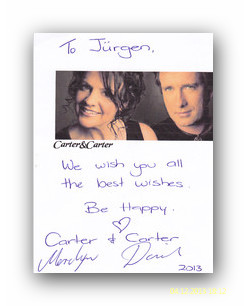 To Jürgen,
Carter&Carter
We wish you all
the best wishes.
Be Happy.
Carter & Carter
Merelyn David
2013